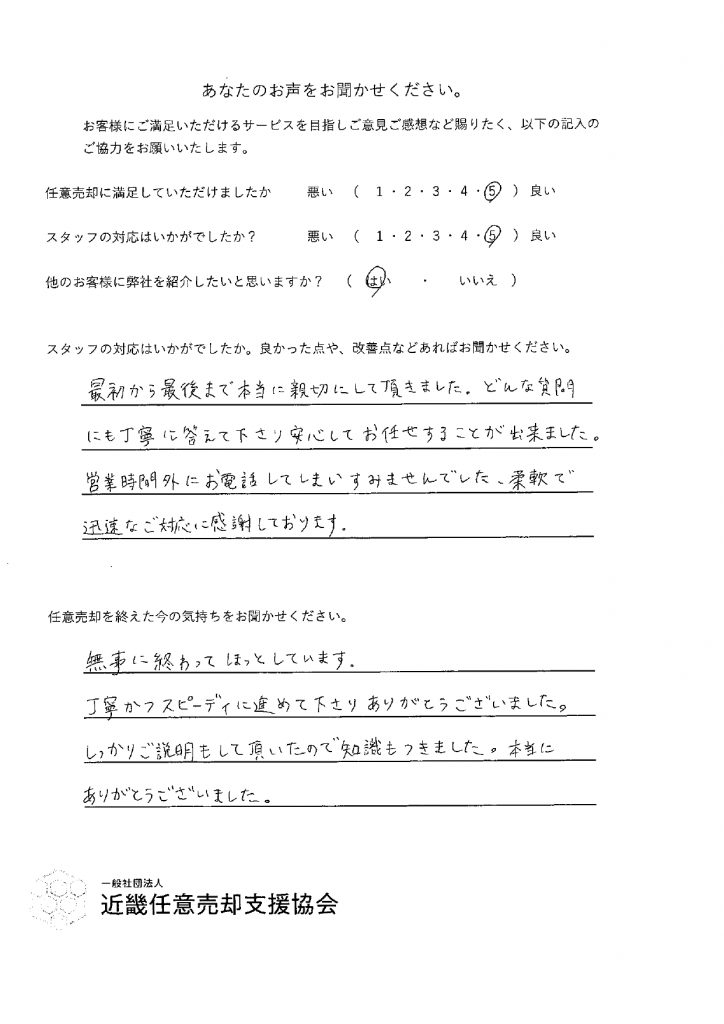 あなたのお声をお聞かせください。
お客様にご満足いただけるサービスを目指しご意見ご感想など賜りたく、以下の記入の
ご協力をお願いいたします。
任意売却に満足していただけましたか 悪い ( 1・2・3・4・5 ) 良い
スタッフの対応はいかがでしたか? 悪い ( 1・2・3・4・5 ) 良い
他のお客様に弊社を紹介したいと思いますか? ( はい ・ いいえ )
スタッフの対応はいかがでしたか。良かった点や、改善点などあればお聞かせください。
最初から最後まで本当に親切にして頂きました。どんな質問
にも丁寧に答えて下さり安心してお任せすることが出来ました。
営業時間外にお電話してしまいすみませんでした、柔軟で
迅速なご対応に感謝しております。
任意売却を終えた今の気持ちをお聞かせください。
無事に終わってほっとしています。
丁寧かつスピーディに進めて下さりありがとうございました。
しっかりご説明もして頂いたので知識もつきました。本当に
ありがとうございました。
一般社団法人
近畿任意売却支援協会